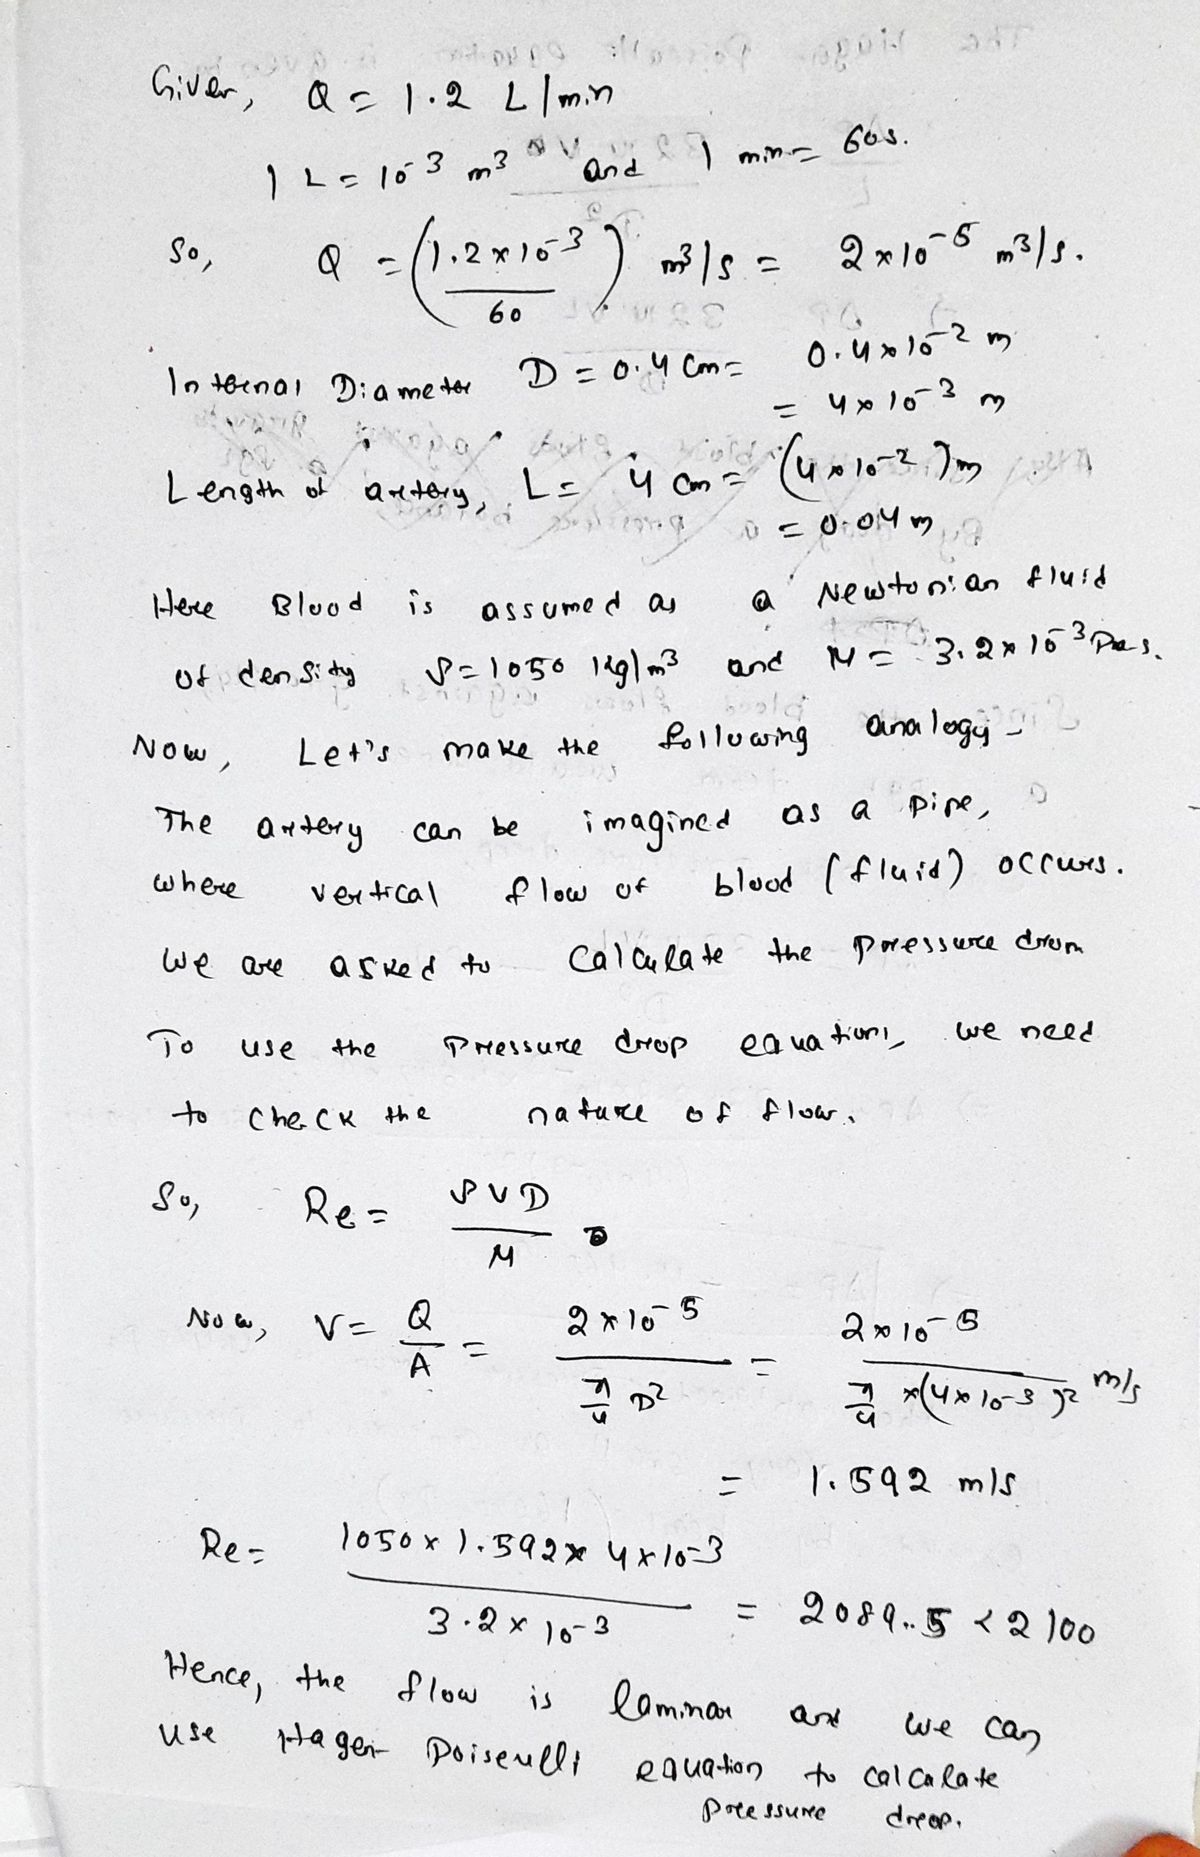 Given, Q = 1.2 L/min
1 L = 10^-3 m^3 and 1 min = 60s.
So, Q = (1.2 × 10^-3 / 60) m^3/s = 2 × 10^-5 m^3/s.
Internal Diameter D = 0.4 cm = 0.4 × 10^-2 m
= 4 × 10^-3 m
Length of artery, L = 4 cm = (4 × 10^-2) m
= 0.04 m
Here Blood is assumed as a Newtonian fluid
of density ρ = 1050 kg/m^3 and μ = 3.2 × 10^-3 Pa-s.
Now, Let's make the following analogy -
The artery can be imagined as a pipe,
where vertical flow of blood (fluid) occurs.
We are asked to calculate the pressure drop
To use the pressure drop equations, we need
to check the nature of flow.
So, Re = ρVD / μ
Now, V = Q/A = 2 × 10^-5 / (π/4 D^2) = 2 × 10^-5 / (π/4 × (4 × 10^-3)^2) m/s
= 1.592 m/s
Re = 1050 × 1.592 × 4 × 10^-3 / 3.2 × 10^-3 = 2089.5 < 2100
Hence, the flow is laminar and we can
use Hagen-Poiseulli equation to calculate
pressure drop.